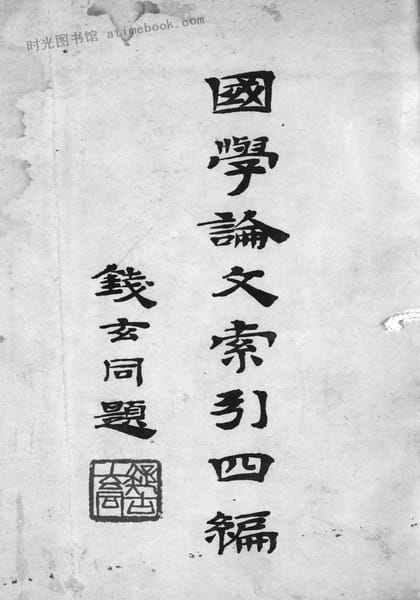 时光图书馆 atimebook.com
國學論文索引四編
錢玄同題